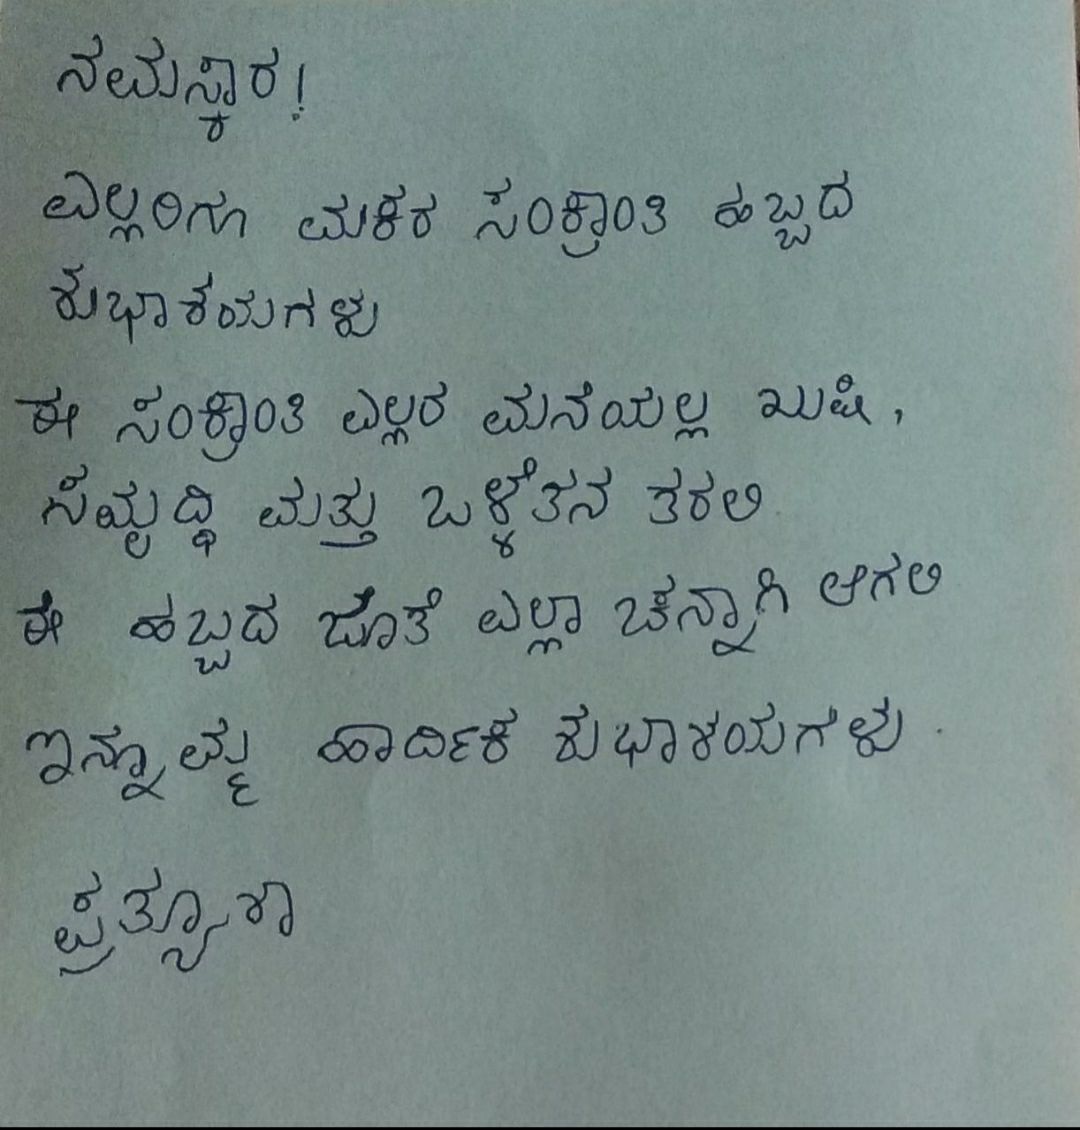 ನಮಸ್ಕಾರ!
ಎಲ್ಲರಿಗೂ ಮಕರ ಸಂಕ್ರಾಂತಿ ಹಬ್ಬದ
ಶುಭಾಶಯಗಳು
ಈ ಸಂಕ್ರಾಂತಿ ಎಲ್ಲರ ಮನೆಯಲ್ಲ ಖುಷಿ,
ಸಮೃದ್ಧಿ ಮತ್ತು ಒಳ್ಳೆತನ ತರಲಿ
ಈ ಹಬ್ಬದ ಜೊತೆ ಎಲ್ಲಾ ಚನ್ನಾಗಿ ಆಗಲಿ
ಹಾರ್ದಿಕ ಶುಭಾಶಯಗಳು.
ಪ್ರತ್ಯೂಶಾ